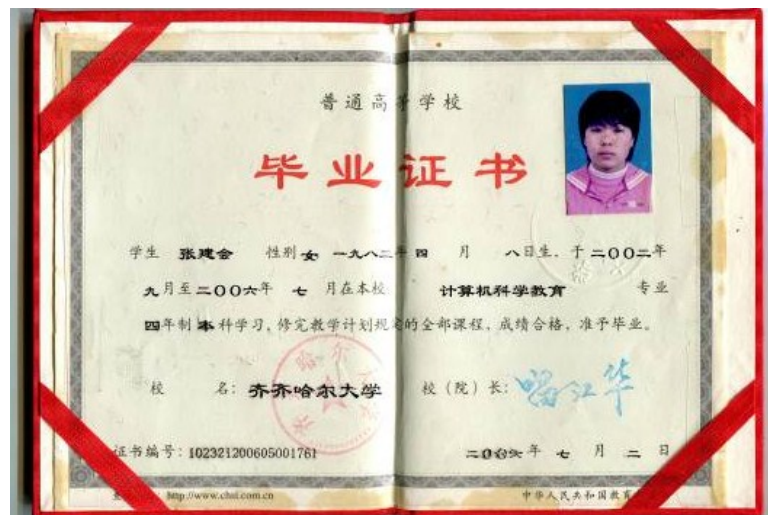 普通高等学校
毕业证书
学生 张建会 性别 女 一九八二年 四 月 八日生，于 二〇〇二年
九月至二〇〇六年 七 月在本校 计算机科学教育 专业
四年制 本 科学习，修完教学计划规定的全部课程，成绩合格，准予毕业。
校 名：齐齐哈尔大学 校（院）长：
证书编号：102321200605001761 二〇〇六年 七 月 二 日
http://www.chsi.com.cn 中华人民共和国教育